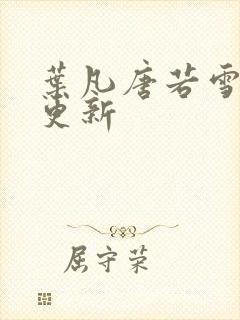 葉凡唐若雪
更新
屈守荣